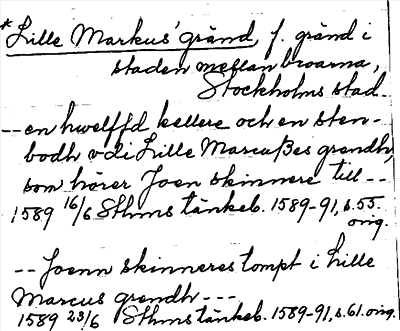 *Lille Markus' gränd, f. gränd i
staden mellan broarna,
Stockholms stad.
-- en hwelffd kellere och en sten-
bodh vdi Lille Marcußes grendh,
som hörer Joen skinnere till --
1589 16/6 Sthms tänkeb. 1589-91, s. 55.
orig.
-- Joenn skinneres tompt i Lille
Marcus grendh ---
1589 23/6 Sthms tänkeb. 1589-91, s. 61. orig.